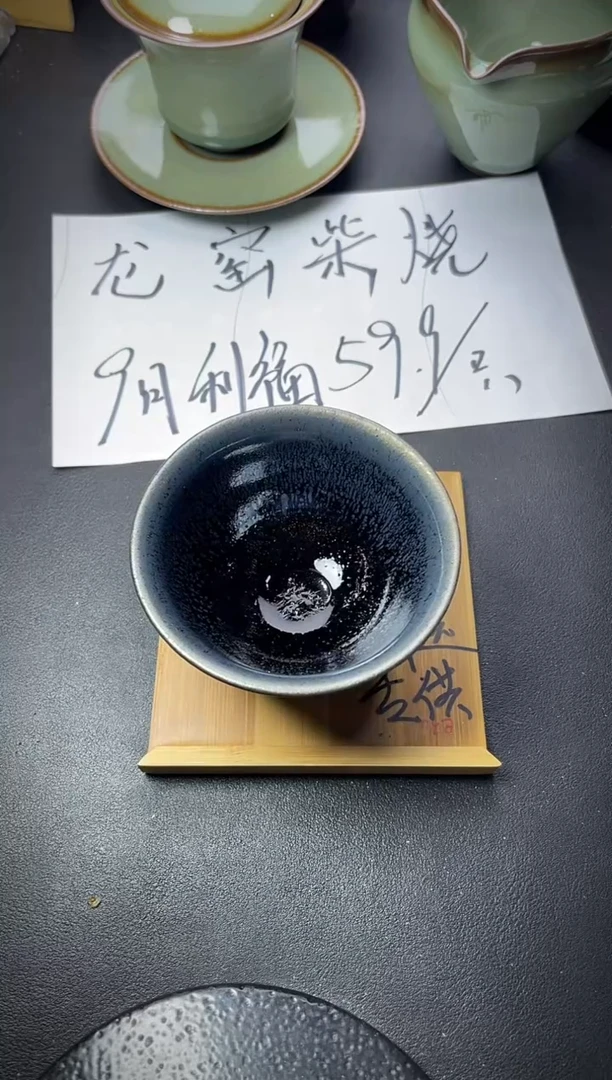 龙窑柴烧
9月利福59.9/只
供